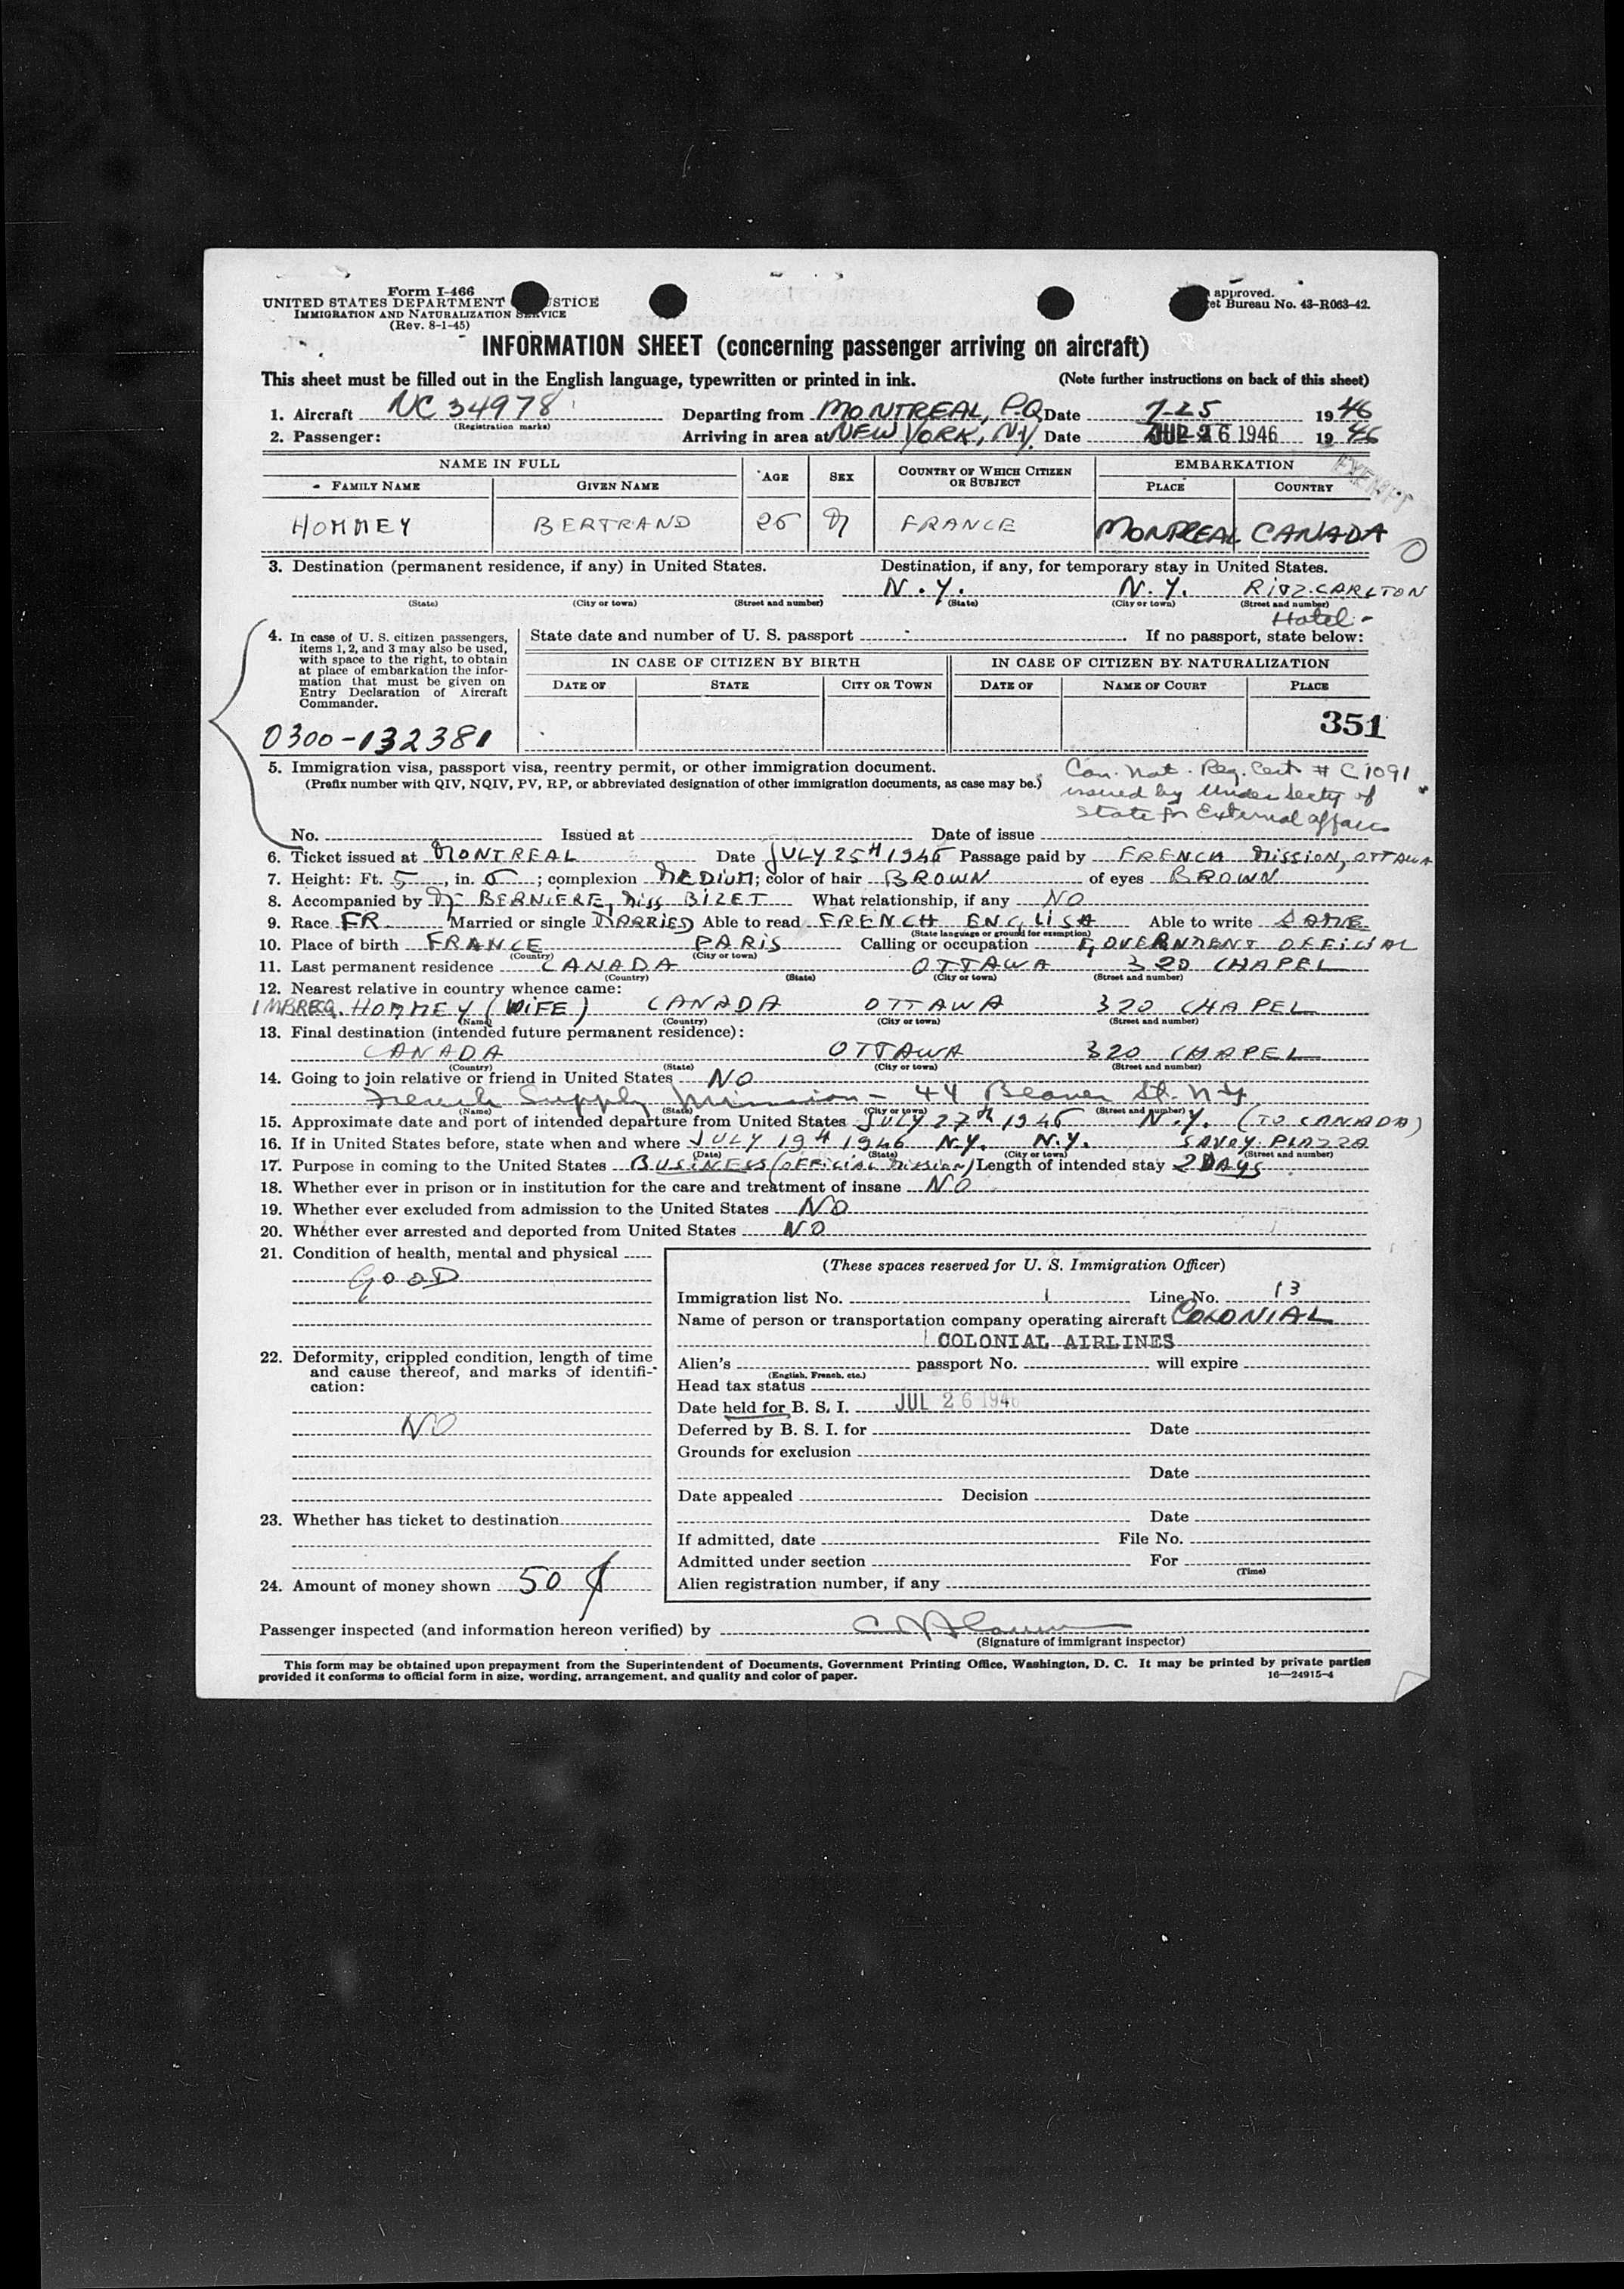 Form I-466
UNITED STATES DEPARTMENT JUSTICE
IMMIGRATION AND NATURALIZATION SERVICE
(Rev. 8-1-45)
approved.
et Bureau No. 43-R063-42.
INFORMATION SHEET (concerning passenger arriving on aircraft)
This sheet must be filled out in the English language, typewritten or printed in ink. (Note further instructions on back of this sheet)
1. Aircraft NC 34978 Departing from MONTREAL, P.Q. Date 7-25 1946
(Registration marks)
2. Passenger: Arriving in area at NEW YORK, N.Y. Date JUL 26 1946 1946
EXEMPT
NAME IN FULL AGE SEX COUNTRY OF WHICH CITIZEN OR SUBJECT EMBARKATION
FAMILY NAME GIVEN NAME PLACE COUNTRY
HOMMEY BERTRAND 26 M FRANCE MONTREAL CANADA
3. Destination (permanent residence, if any) in United States. Destination, if any, for temporary stay in United States.
N.Y. N.Y. RITZ-CARLTON
(State) (City or town) (Street and number) (State) (City or town) (Street and number)
Hotel -
4. In case of U. S. citizen passengers, items 1, 2, and 3 may also be used, with space to the right, to obtain at place of embarkation the information that must be given on Entry Declaration of Aircraft Commander.
State date and number of U. S. passport If no passport, state below:
IN CASE OF CITIZEN BY BIRTH IN CASE OF CITIZEN BY NATURALIZATION
DATE OF STATE CITY OR TOWN DATE OF NAME OF COURT PLACE
351
0300-132381
5. Immigration visa, passport visa, reentry permit, or other immigration document.
(Prefix number with QIV, NQIV, PV, RP, or abbreviated designation of other immigration documents, as case may be.)
Can. Nat. Reg. Cert. # C1091
issued by Under Secty of
State for External affairs
No. Issued at Date of issue
6. Ticket issued at MONTREAL Date JULY 25H 1946 Passage paid by FRENCH MISSION, OTTAWA
7. Height: Ft. 5, in. 6; complexion MEDIUM; color of hair BROWN of eyes BROWN
8. Accompanied by Mr BERNIERE, Miss BIZET What relationship, if any NO
9. Race FR. Married or single MARRIED Able to read FRENCH ENGLISH Able to write SAME
(State language or ground for exemption)
10. Place of birth FRANCE PARIS Calling or occupation GOVERNMENT OFFICIAL
(Country) (City or town)
11. Last permanent residence CANADA OTTAWA 320 CHAPEL
(Country) (State) (City or town) (Street and number)
12. Nearest relative in country whence came:
HOMMEY (WIFE) CANADA OTTAWA 320 CHAPEL
(Name) (Country) (City or town) (Street and number)
13. Final destination (intended future permanent residence):
CANADA OTTAWA 320 CHAPEL
(Country) (State) (City or town) (Street and number)
14. Going to join relative or friend in United States NO
French Supply Mission - 44 Beaver St. N.Y.
(Name) (State) (City or town) (Street and number)
15. Approximate date and port of intended departure from United States JULY 27th 1946 N.Y. (TO CANADA)
16. If in United States before, state when and where JULY 19H 1946 N.Y. N.Y. SAVOY PLAZZA
(Date) (State) (City or town) (Street and number)
17. Purpose in coming to the United States BUSINESS (OFFICIAL MISSION) Length of intended stay 2 DAYS
18. Whether ever in prison or in institution for the care and treatment of insane NO
19. Whether ever excluded from admission to the United States NO
20. Whether ever arrested and deported from United States NO
21. Condition of health, mental and physical
GOOD
22. Deformity, crippled condition, length of time and cause thereof, and marks of identification:
NO
23. Whether has ticket to destination
24. Amount of money shown 50 $
(These spaces reserved for U. S. Immigration Officer)
Immigration list No. 1 Line No. 13
Name of person or transportation company operating aircraft COLONIAL
COLONIAL AIRLINES
Alien's passport No. will expire
(English, French, etc.)
Head tax status
Date held for B. S. I. JUL 26 1946
Deferred by B. S. I. for Date
Grounds for exclusion
Date
Date appealed Decision
Date
If admitted, date File No.
Admitted under section For
(Time)
Alien registration number, if any
Passenger inspected (and information hereon verified) by
(Signature of immigrant inspector)
This form may be obtained upon prepayment from the Superintendent of Documents, Government Printing Office, Washington, D. C. It may be printed by private parties
provided it conforms to official form in size, wording, arrangement, and quality and color of paper. 16—24915-4